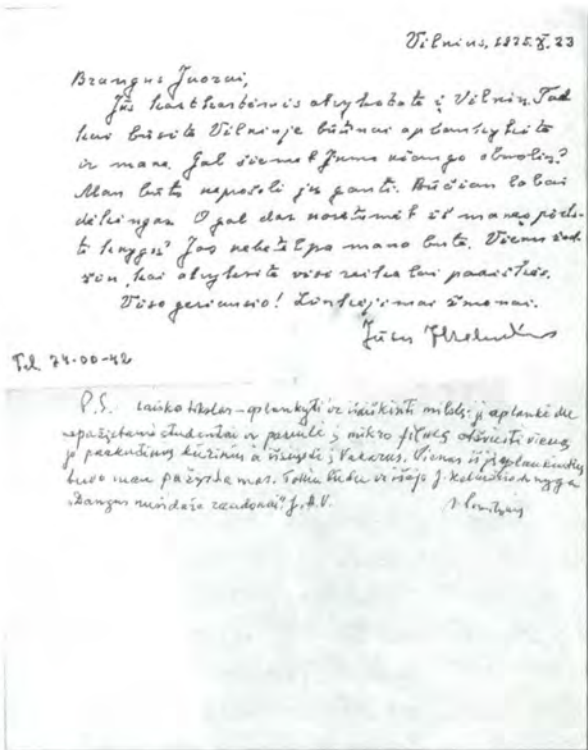 Vilnius, 1975.X.23
Brangus Juozai,
Jūs kartkartėmis atvykstate į Vilnių. Tad
kai būsite Vilniuje būtinai aplankykite
ir mane. Gal šiemet Jums užaugo obuolių?
Man būtų nepašoli jų gauti. Būčiau labai
dėkingas. O gal dar norėtumėt iš manęs pirk-
ti knygų? Jos nebetelpa mano bute. Vienu žod-
žiu, kai atvyksite visi reikalai paaiškės.
Viso geriausio! Linkėjimai žmonai.
Jūsų
Tel. 74-00-42
P.S. Laiško tikslas – aplankyti ir išaiškinti mįslę: jį aplankė du
nepažįstami studentai ir pasiūlė į mikro filmą išversti vieną
jo paskutinių kūrinių ir išsiųsti į Vakarus. Vienas iš jį aplankiusių
buvo man pažįstamas. Tokiu būdu ir išėjo J. knyga
„Dangus nusidažo raudonai" J.A.V.